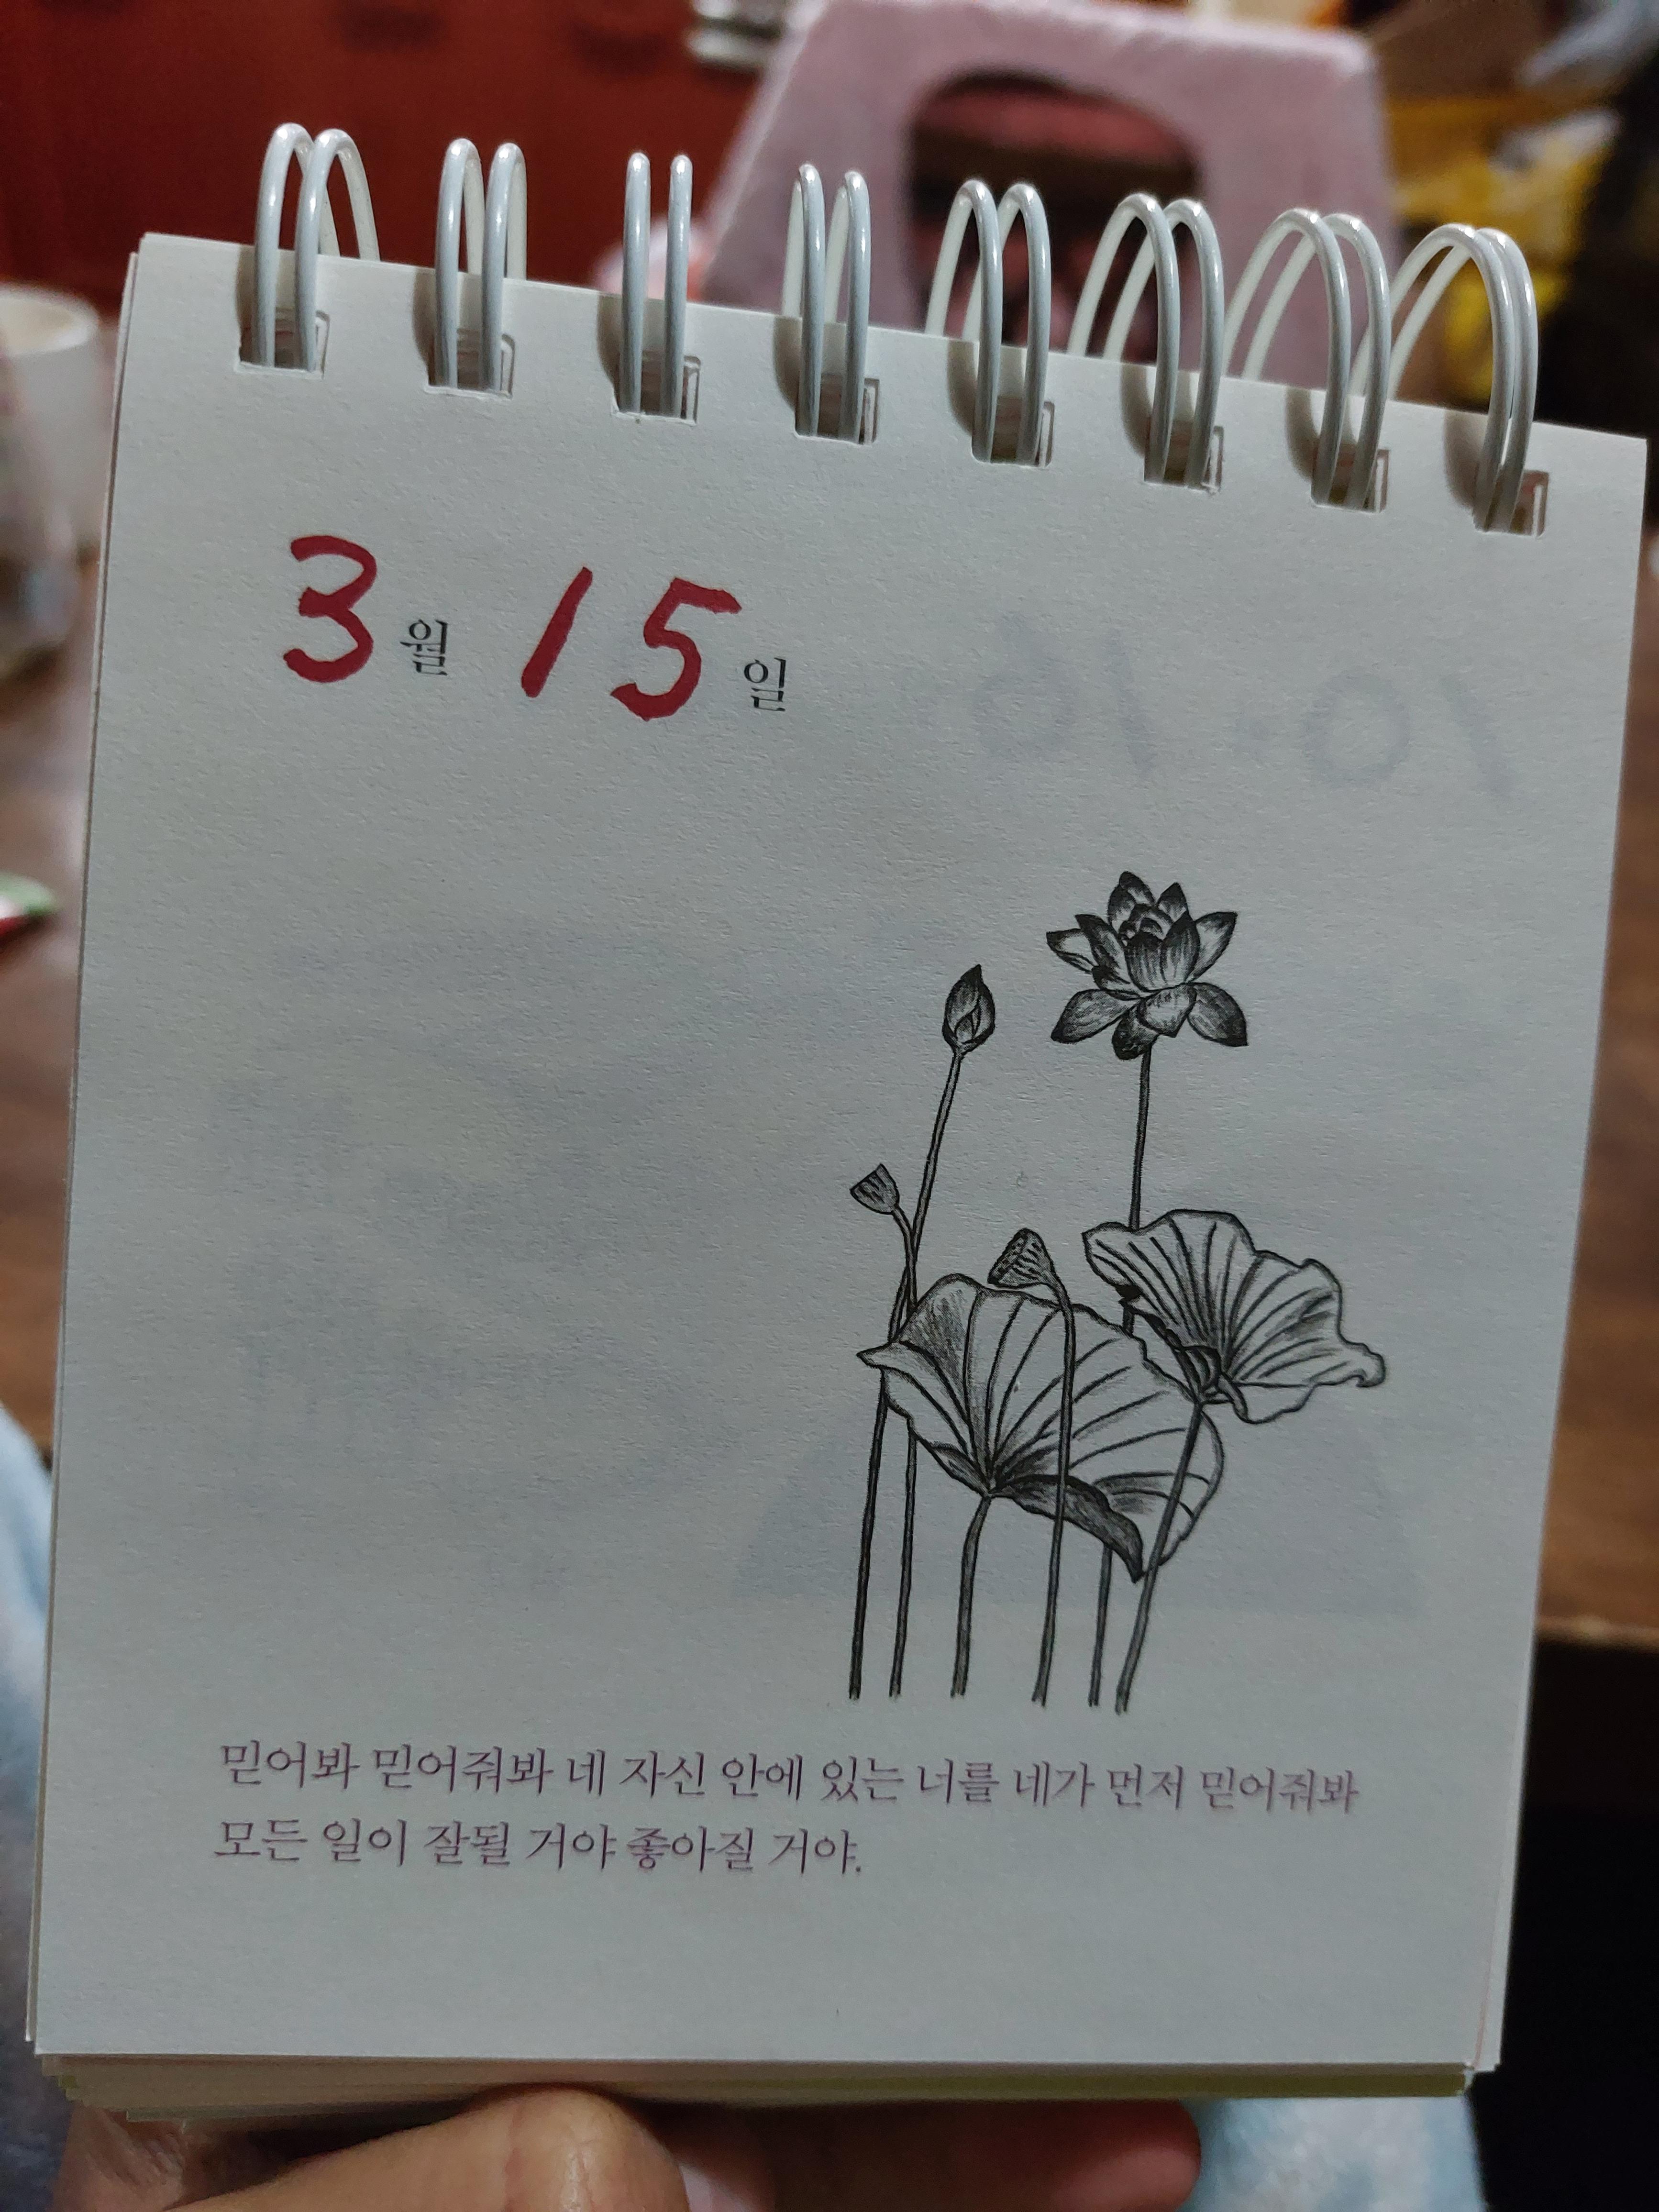 3월 15일
믿어봐 믿어줘봐 네 자신 안에 있는 너를 네가 먼저 믿어줘봐
모든 일이 잘될 거야 좋아질 거야.